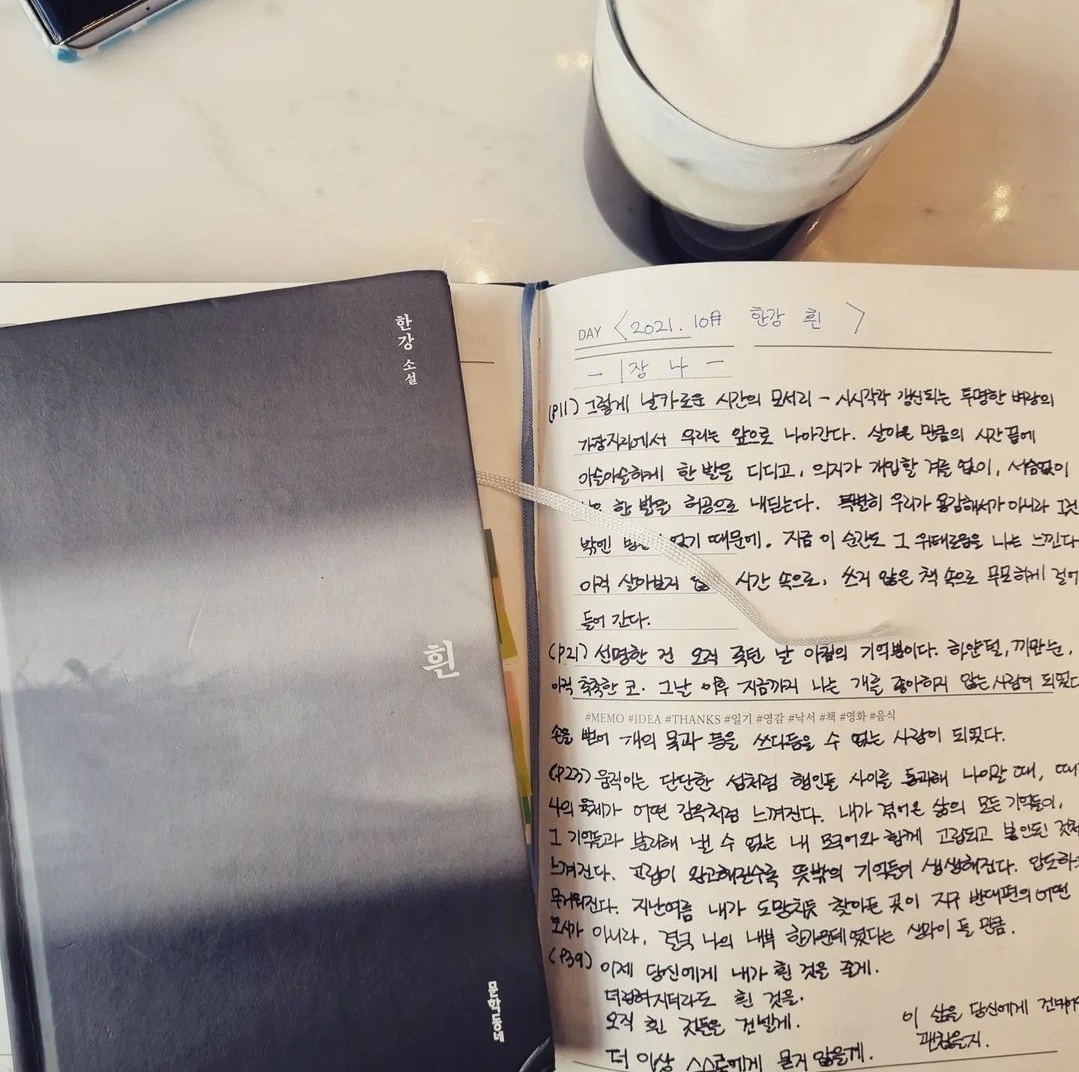 한강 소설
흰
문학동네
DAY < 2021. 10월 한강 흰 >
- 1장 나 -
(P11) 그렇게 날카로운 시간의 모서리 - 시시각각 갱신되는 투명한 벼랑의
가장자리에서 우리는 앞으로 나아간다. 살아온 만큼의 시간 끝에
아슬아슬하게 한 발을 디디고, 의지가 개입할 겨를 없이, 서슴없이
한 발을 허공으로 내딛는다. 특별히 우리가 용감해서가 아니라 그것
밖엔 없기 때문에. 지금 이 순간도 그 위태로움을 나는 느낀다
아직 살아보지 시간 속으로, 쓰지 않은 책 속으로 무모하게 걸어
들어 간다.
(P21) 선명한 건 오직 죽던 날 아침의 기억뿐이다. 하얀털, 까만눈,
아직 축축한 코. 그날 이후 지금까지 나는 개를 좋아하지 않는 사람이 되었다
#MEMO #IDEA #THANKS #일기 #영감 #낙서 #책 #영화 #음식
손을 뻗어 개의 목과 등을 쓰다듬을 수 없는 사람이 되었다.
(P23) 움직이는 단단한 섬처럼 행인들 사이를 통과해 나아갈 때, 때
나의 육체가 어떤 감옥처럼 느껴진다. 내가 겪어온 삶의 모든 기억들이,
그 기억들과 분리해 낼 수 없는 내 모국어와 함께 고립되고 봉인된 것처
느껴진다. 고립이 완고해질수록 뜻밖의 기억들이 생생해진다. 압도하
무거워진다. 지난여름 내가 도망치듯 찾아든 곳이 지구 반대편의 어떤
도시가 아니라, 결국 나의 내부 한가운데였다는 생각이 들 만큼.
(P39) 이제 당신에게 내가 흰 것을 줄게.
더럽혀지더라도 흰 것을.
오직 흰 것들을 건넬게.
더 이상 스스로에게 묻지 않을게.
이 삶을 당신에게 건네어
괜찮을지.